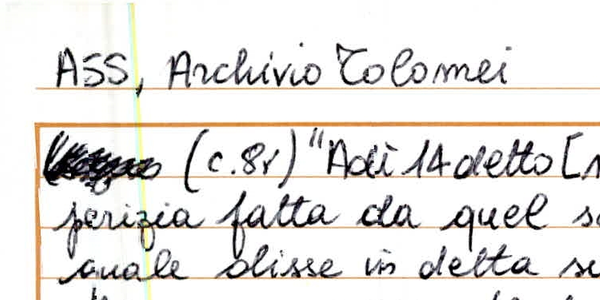 ASS, Archivio Tolomei
(c.8r) "Adì 14 detto [
perizia fatta da quel
quale disse in detta